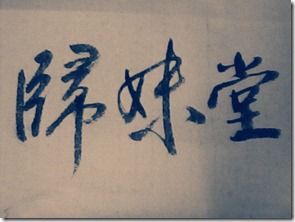 歸妹堂